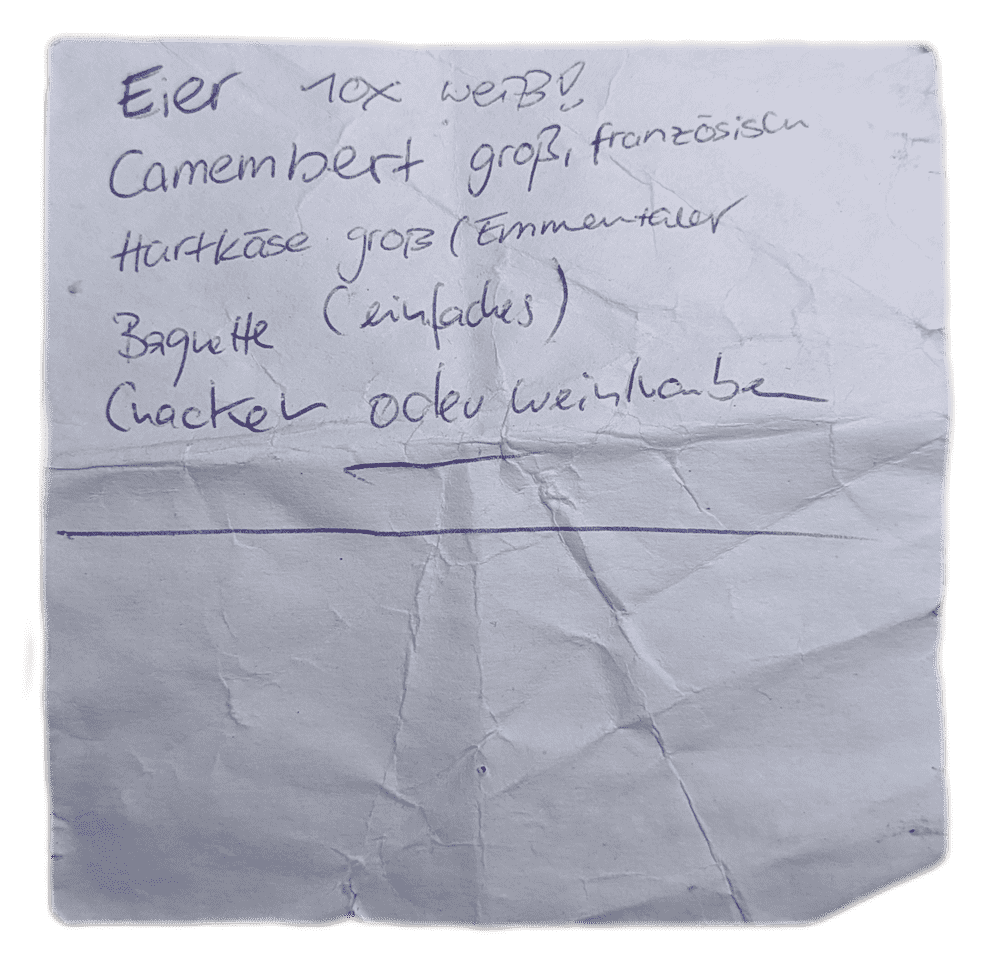 Eier 10x weiß!
Camembert groß, französisch
Hartkäse groß (Emmentaler
Baguette (einfaches)
Cracker oder Weintrauben